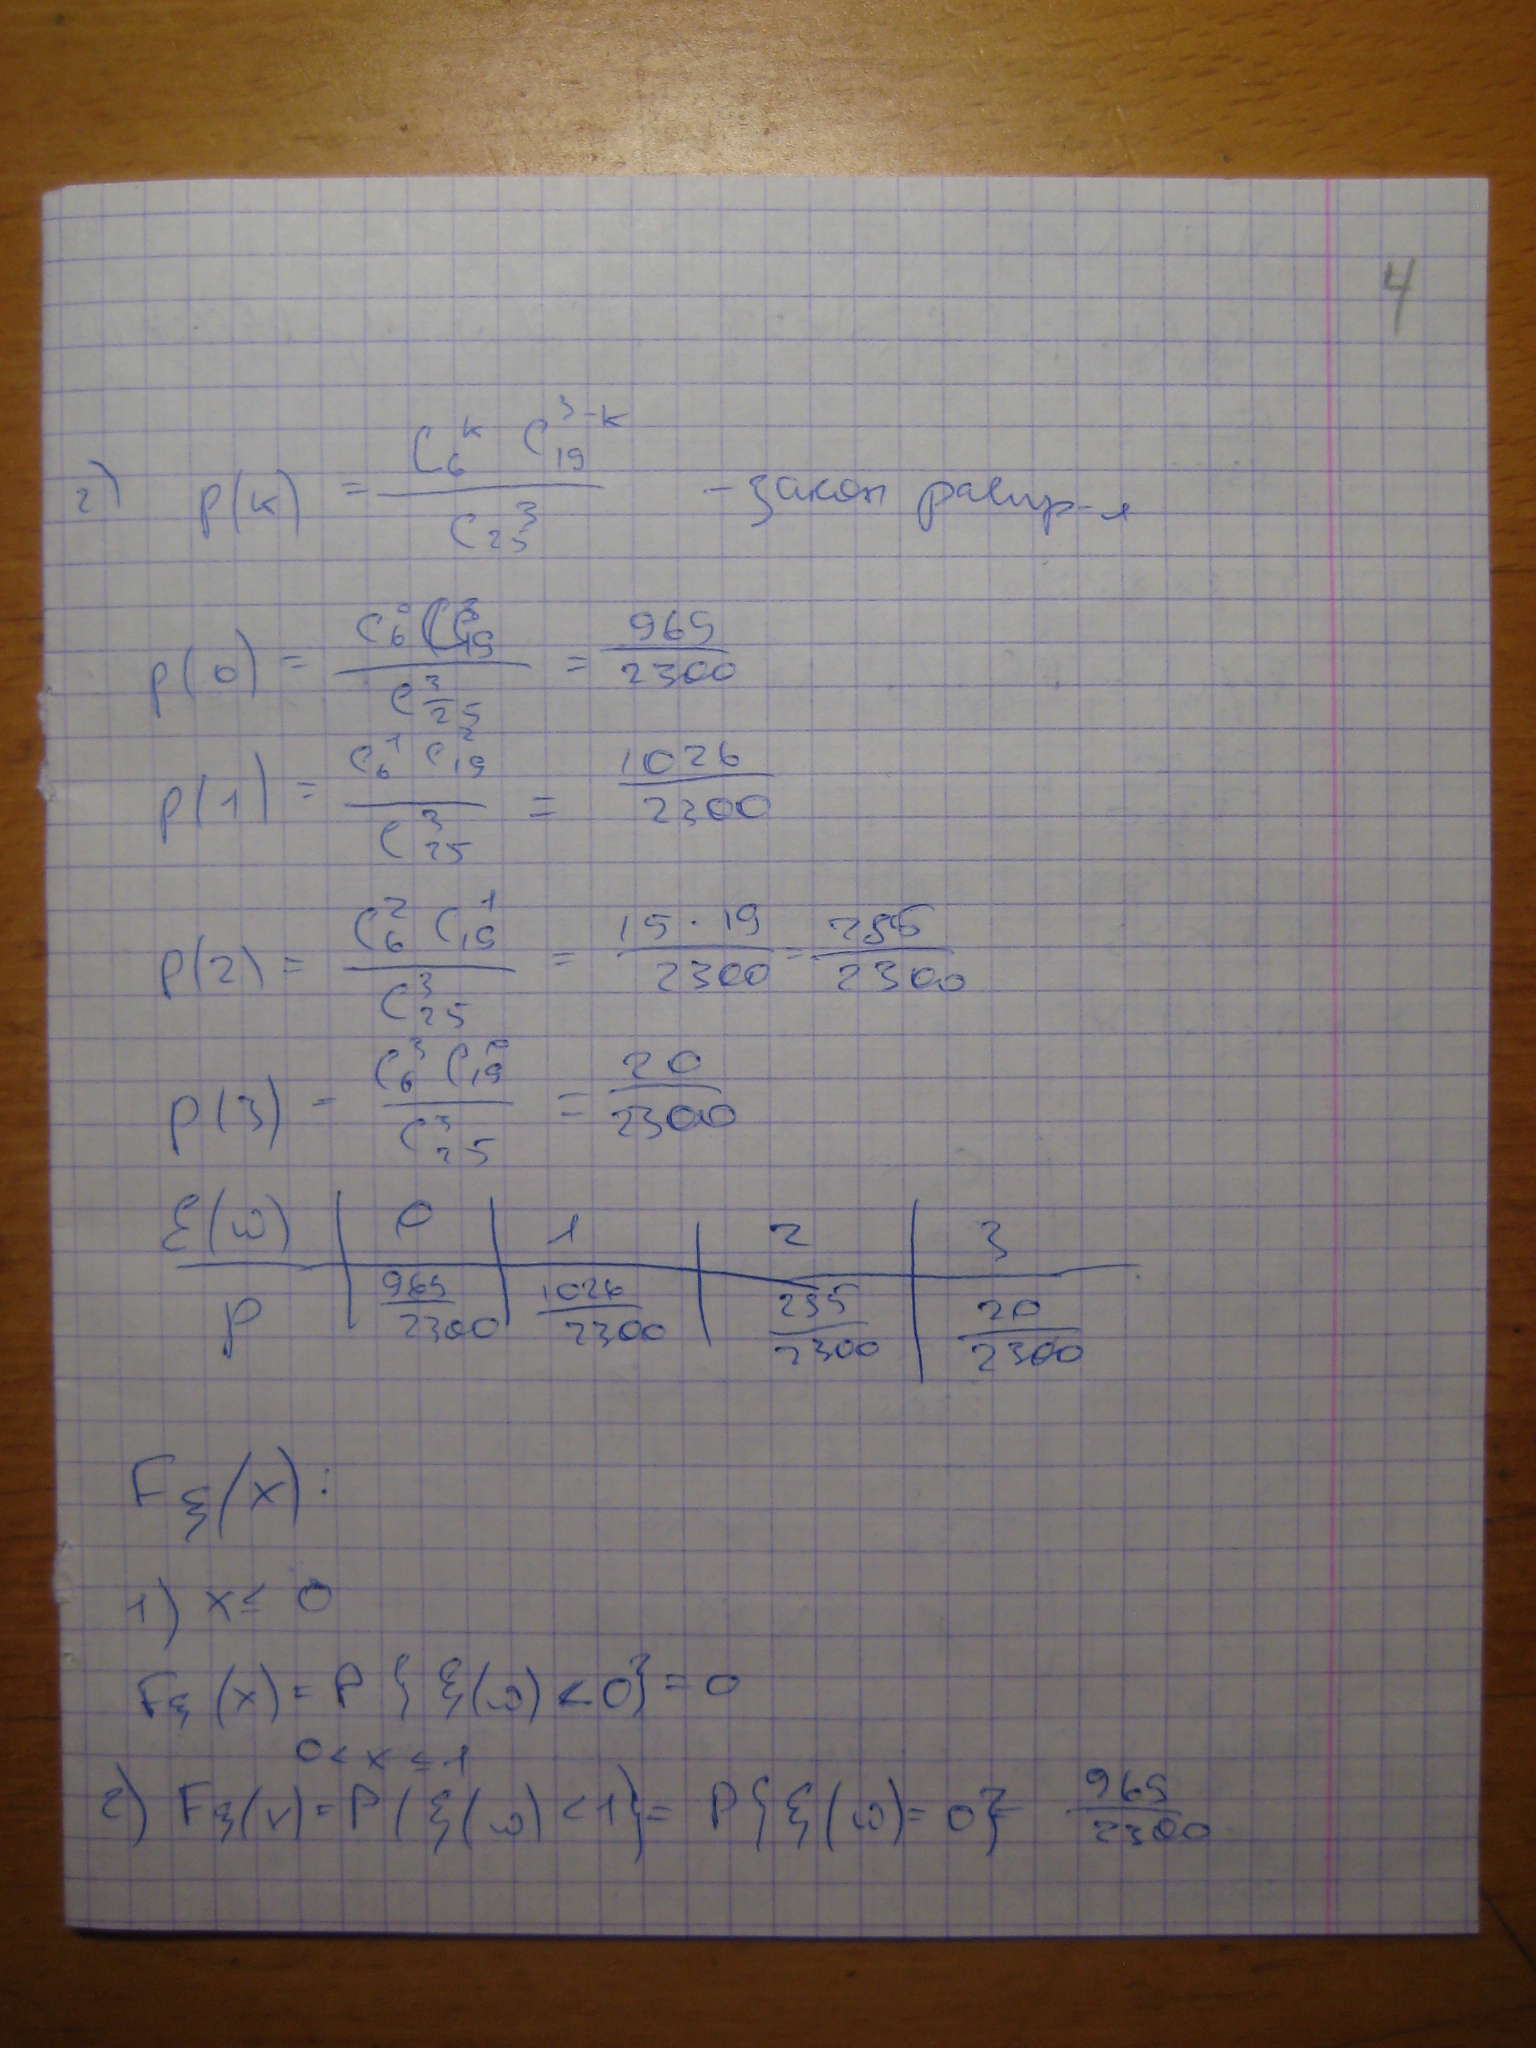 4
2) p(k) = C_6^k C_19^{3-k} / C_25^3 - закон распр-я
p(0) = C_6^0 C_19^3 / C_25^3 = 969/2300
p(1) = C_6^1 C_19^2 / C_25^3 = 1026/2300
p(2) = C_6^2 C_19^1 / C_25^3 = 15·19/2300 = 285/2300
p(3) = C_6^3 C_19^0 / C_25^3 = 20/2300
ξ(ω) | 0 | 1 | 2 | 3
p | 969/2300 | 1026/2300 | 285/2300 | 20/2300
F_ξ(x):
1) x ≤ 0
F_ξ(x) = P{ξ(ω) < 0} = 0
0 < x ≤ 1
2) F_ξ(x) = P(ξ(ω) < 1} = P{ξ(ω) = 0} = 969/2300